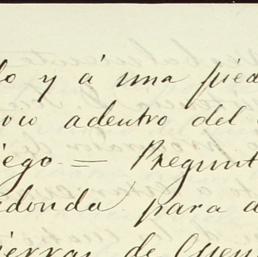 lo y á una pied
oio adentro del
iego = Pregunt
edonda para a
ierras de Cuen